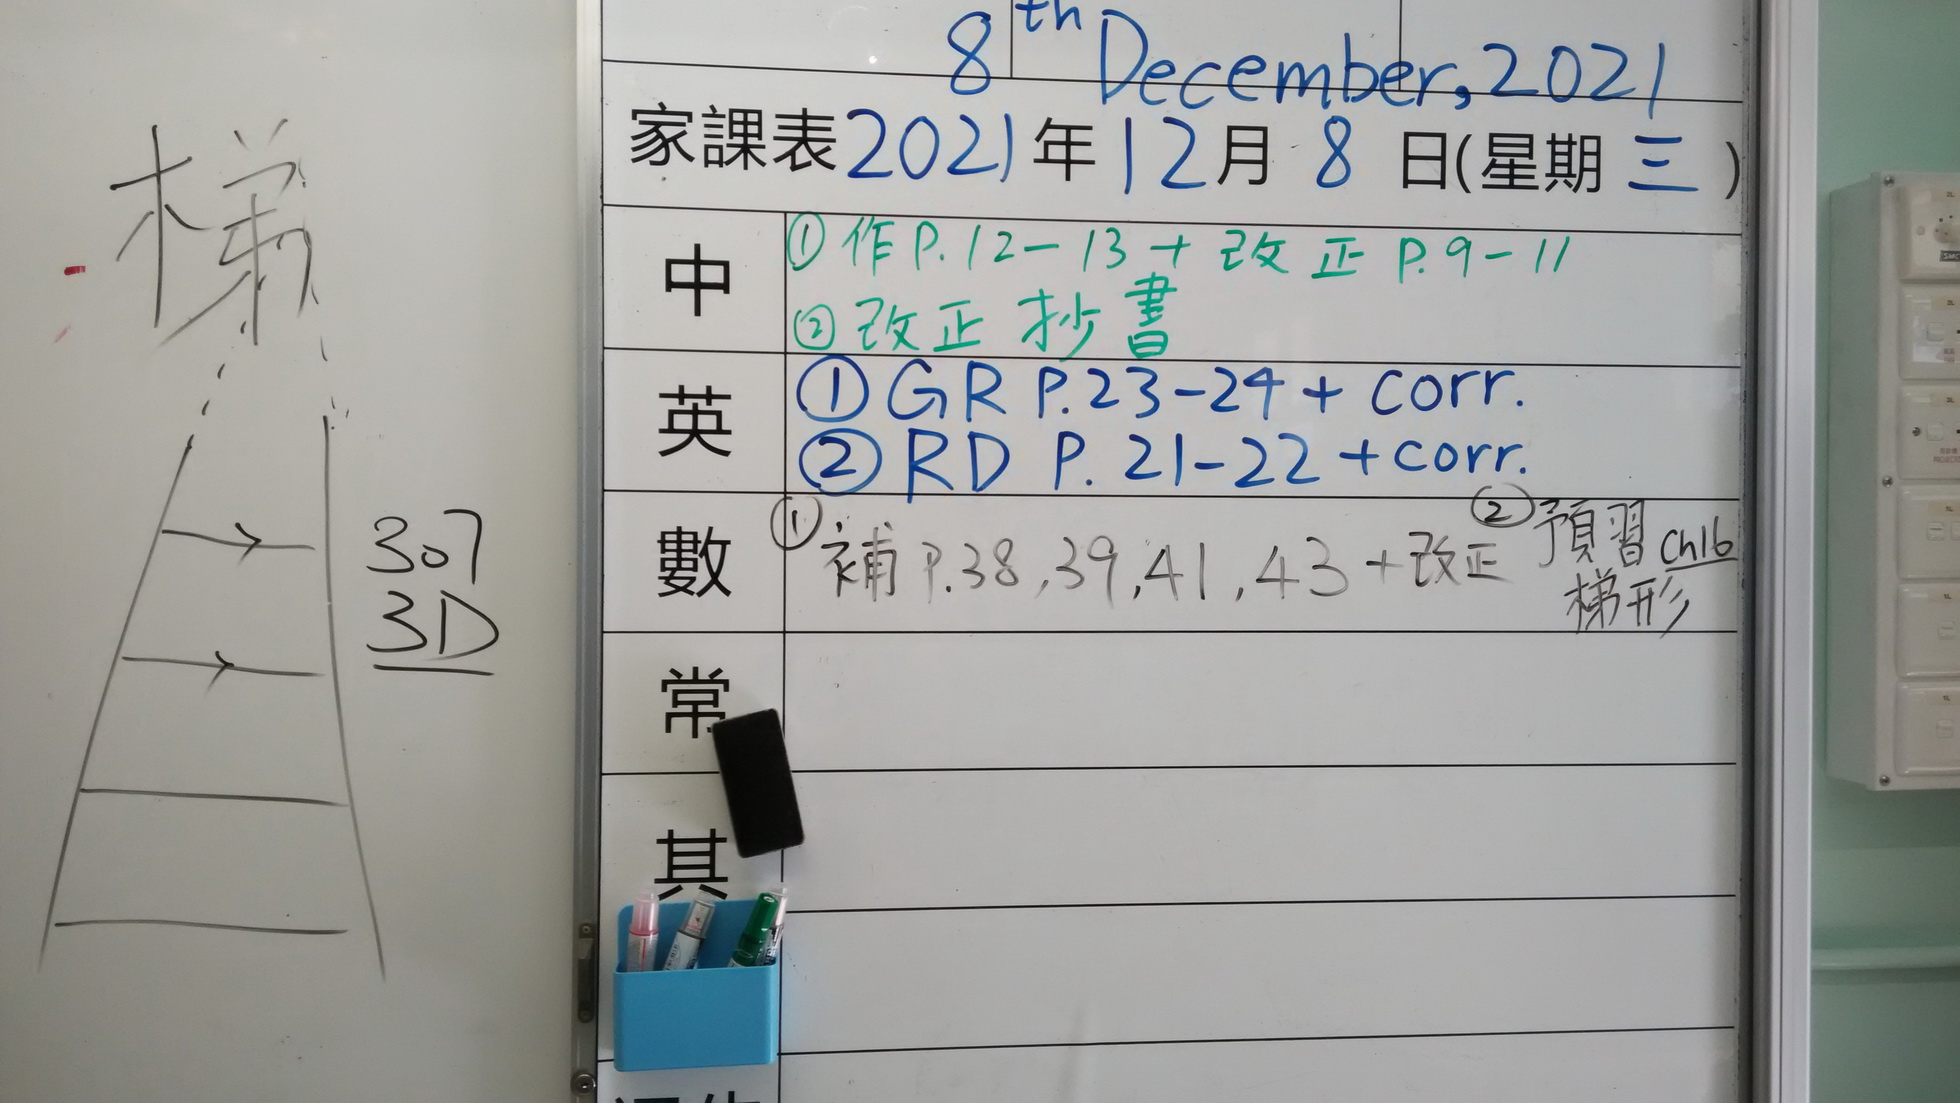 梯
307
3D
8th December, 2021
家課表 2021年12月8日(星期三)
中
① 作P.12-13+改正P.9-11
② 改正抄書
英
① GR P.23-24 + corr.
② RD P.21-22 + corr.
數
① 補P.38,39,41,43+改正
② 預習 ch16
梯形
常
其